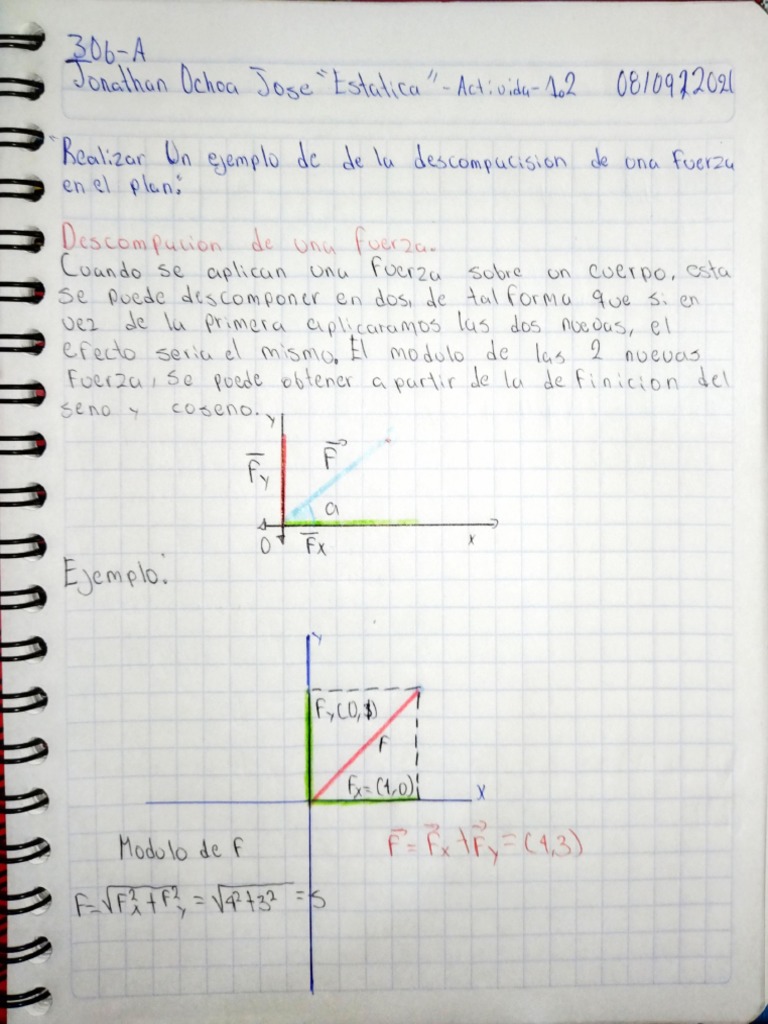 306-A
Jonathan Ochoa Jose "Estatica" - Activida - 1.2 08/09/2021
"Realizar Un ejemplo de de la descompucision de una fuerza
en el plan:
Descompucion de una fuerza.
Cuando se aplican una fuerza sobre un cuerpo, esta
se puede descomponer en dos, de tal forma que si en
vez de la primera aplicaramos las dos nuevas, el
efecto seria el mismo. El modulo de las 2 nuevas
fuerza, se puede obtener a partir de la definicion del
seno y coseno.
y
F⃗
F̄y
a
0 F̄x x
Ejemplo:
y
Fy(0,3)
F
Fx=(4,0)
x
Modulo de f
F⃗=F⃗x+F⃗y=(4,3)
F=√Fx²+Fy²=√4²+3²=5